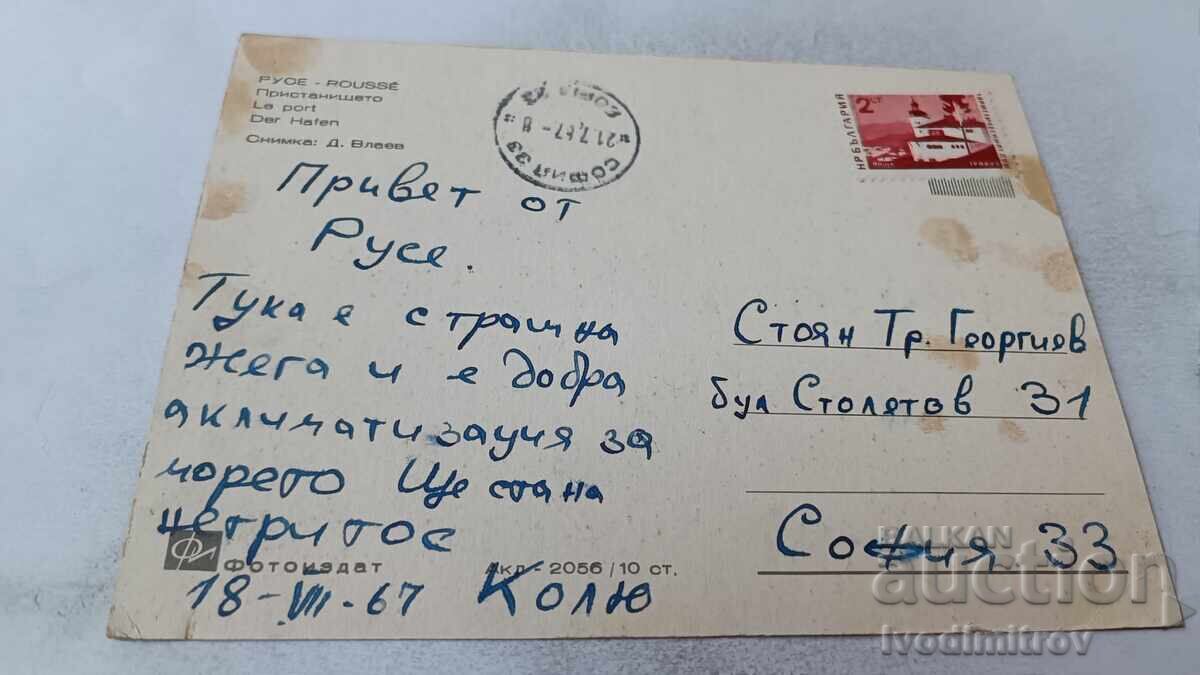 РУСЕ - ROUSSÉ
Пристанището
Le port
Der Hafen
Снимка: Д. Влаев
СОФИЯ 33
21.7.67-8
2 СТ
НР БЪЛГАРИЯ
Привет от
Русе.
Тука е страшна
жега и е добра
аклиматизация за
морето Ще стана
негритос
18-VII-67 Колю
Фотоиздат
Акл. 2056/10 ст.
Стоян Тр. Георгиев
бул Столетов 31
София 33
BALKAN
auction
Ivodimitrov